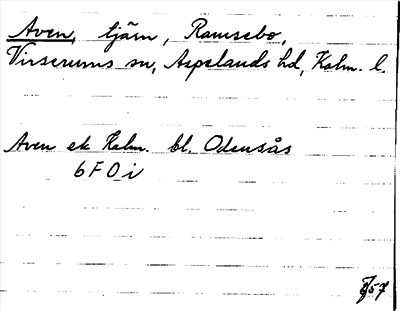 Aven, tjärn, Ramsebo,
Virserums sn, Aspelands hd, Kalm. l.
Aven ek Kalm. bl. Odensås
6 F 0 i